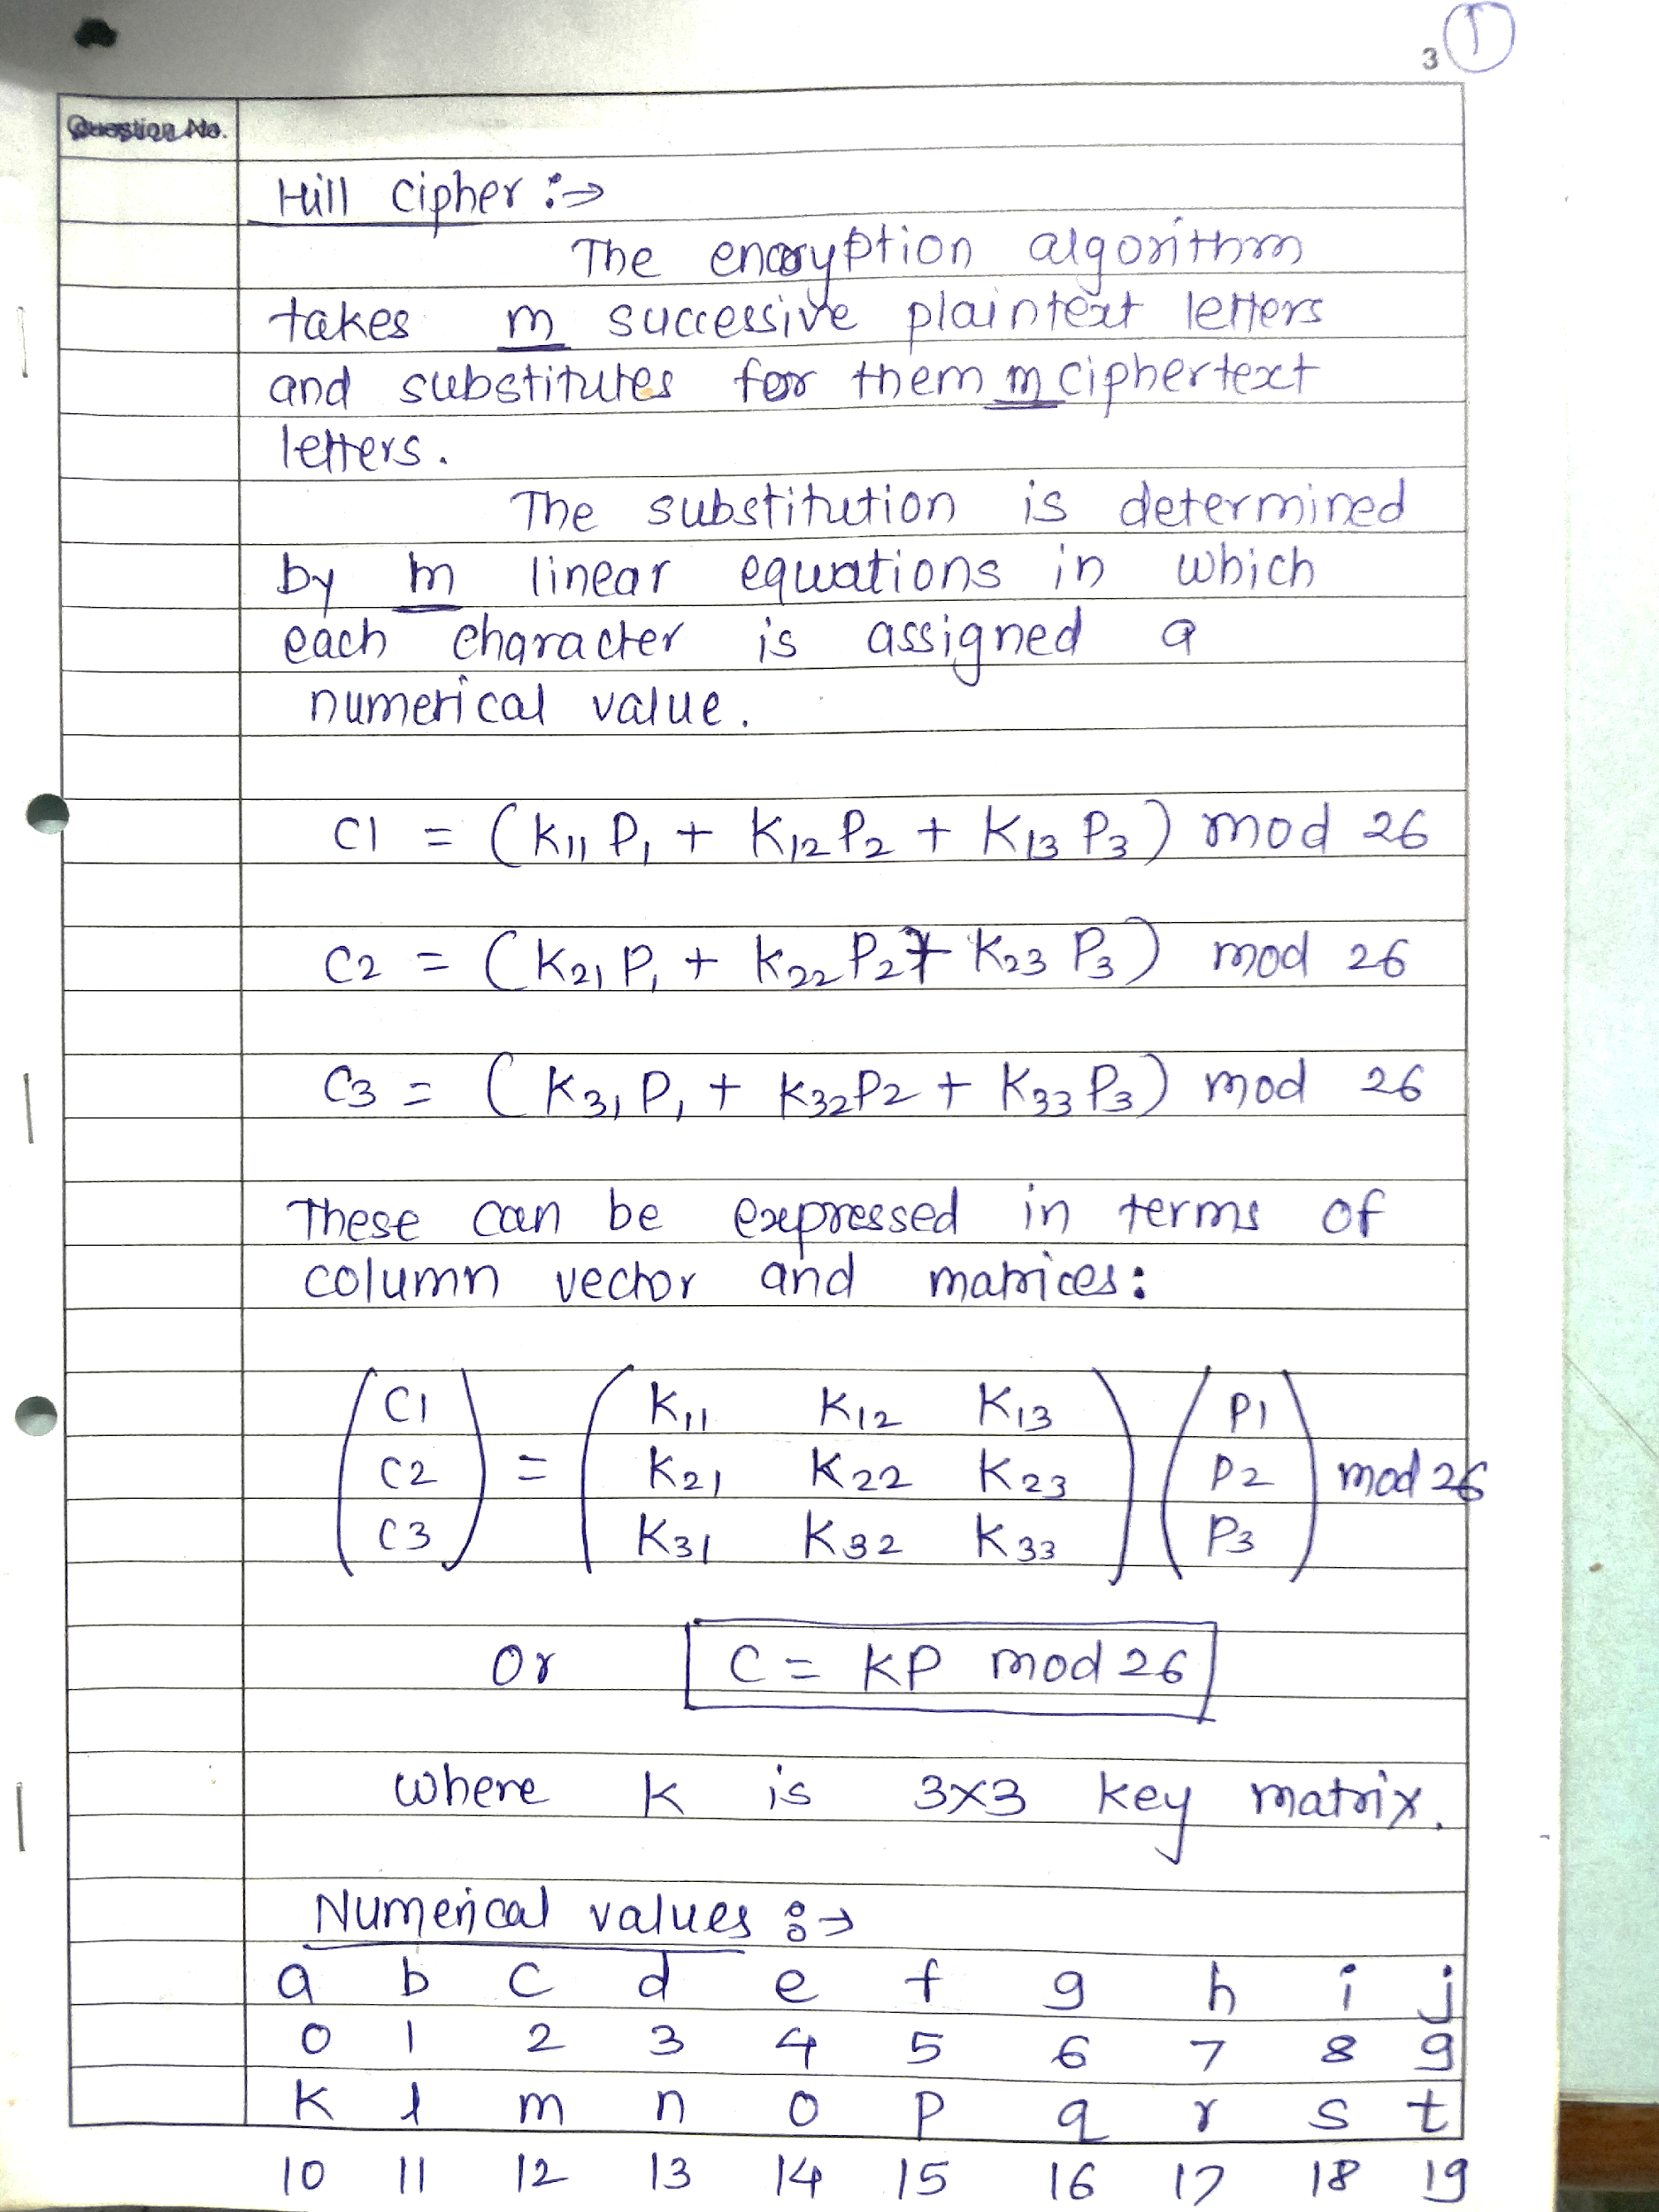 3 1
Question No.
Hill cipher :→
The encryption algorithm
takes m successive plaintext letters
and substitutes for them m ciphertext
letters.
The substitution is determined
by m linear equations in which
each character is assigned a
numerical value.
C1 = (K11 P1 + K12 P2 + K13 P3) mod 26
C2 = (K21 P1 + K22 P2 + K23 P3) mod 26
C3 = (K31 P1 + K32 P2 + K33 P3) mod 26
These can be expressed in terms of
column vector and matrices:
C1 K11 K12 K13 P1
C2 = K21 K22 K23 P2 mod 26
C3 K31 K32 K33 P3
Or C = KP mod 26
where K is 3x3 key matrix.
Numerical values :→
a b c d e f g h i j
0 1 2 3 4 5 6 7 8 9
k l m n o p q r s t
10 11 12 13 14 15 16 17 18 19